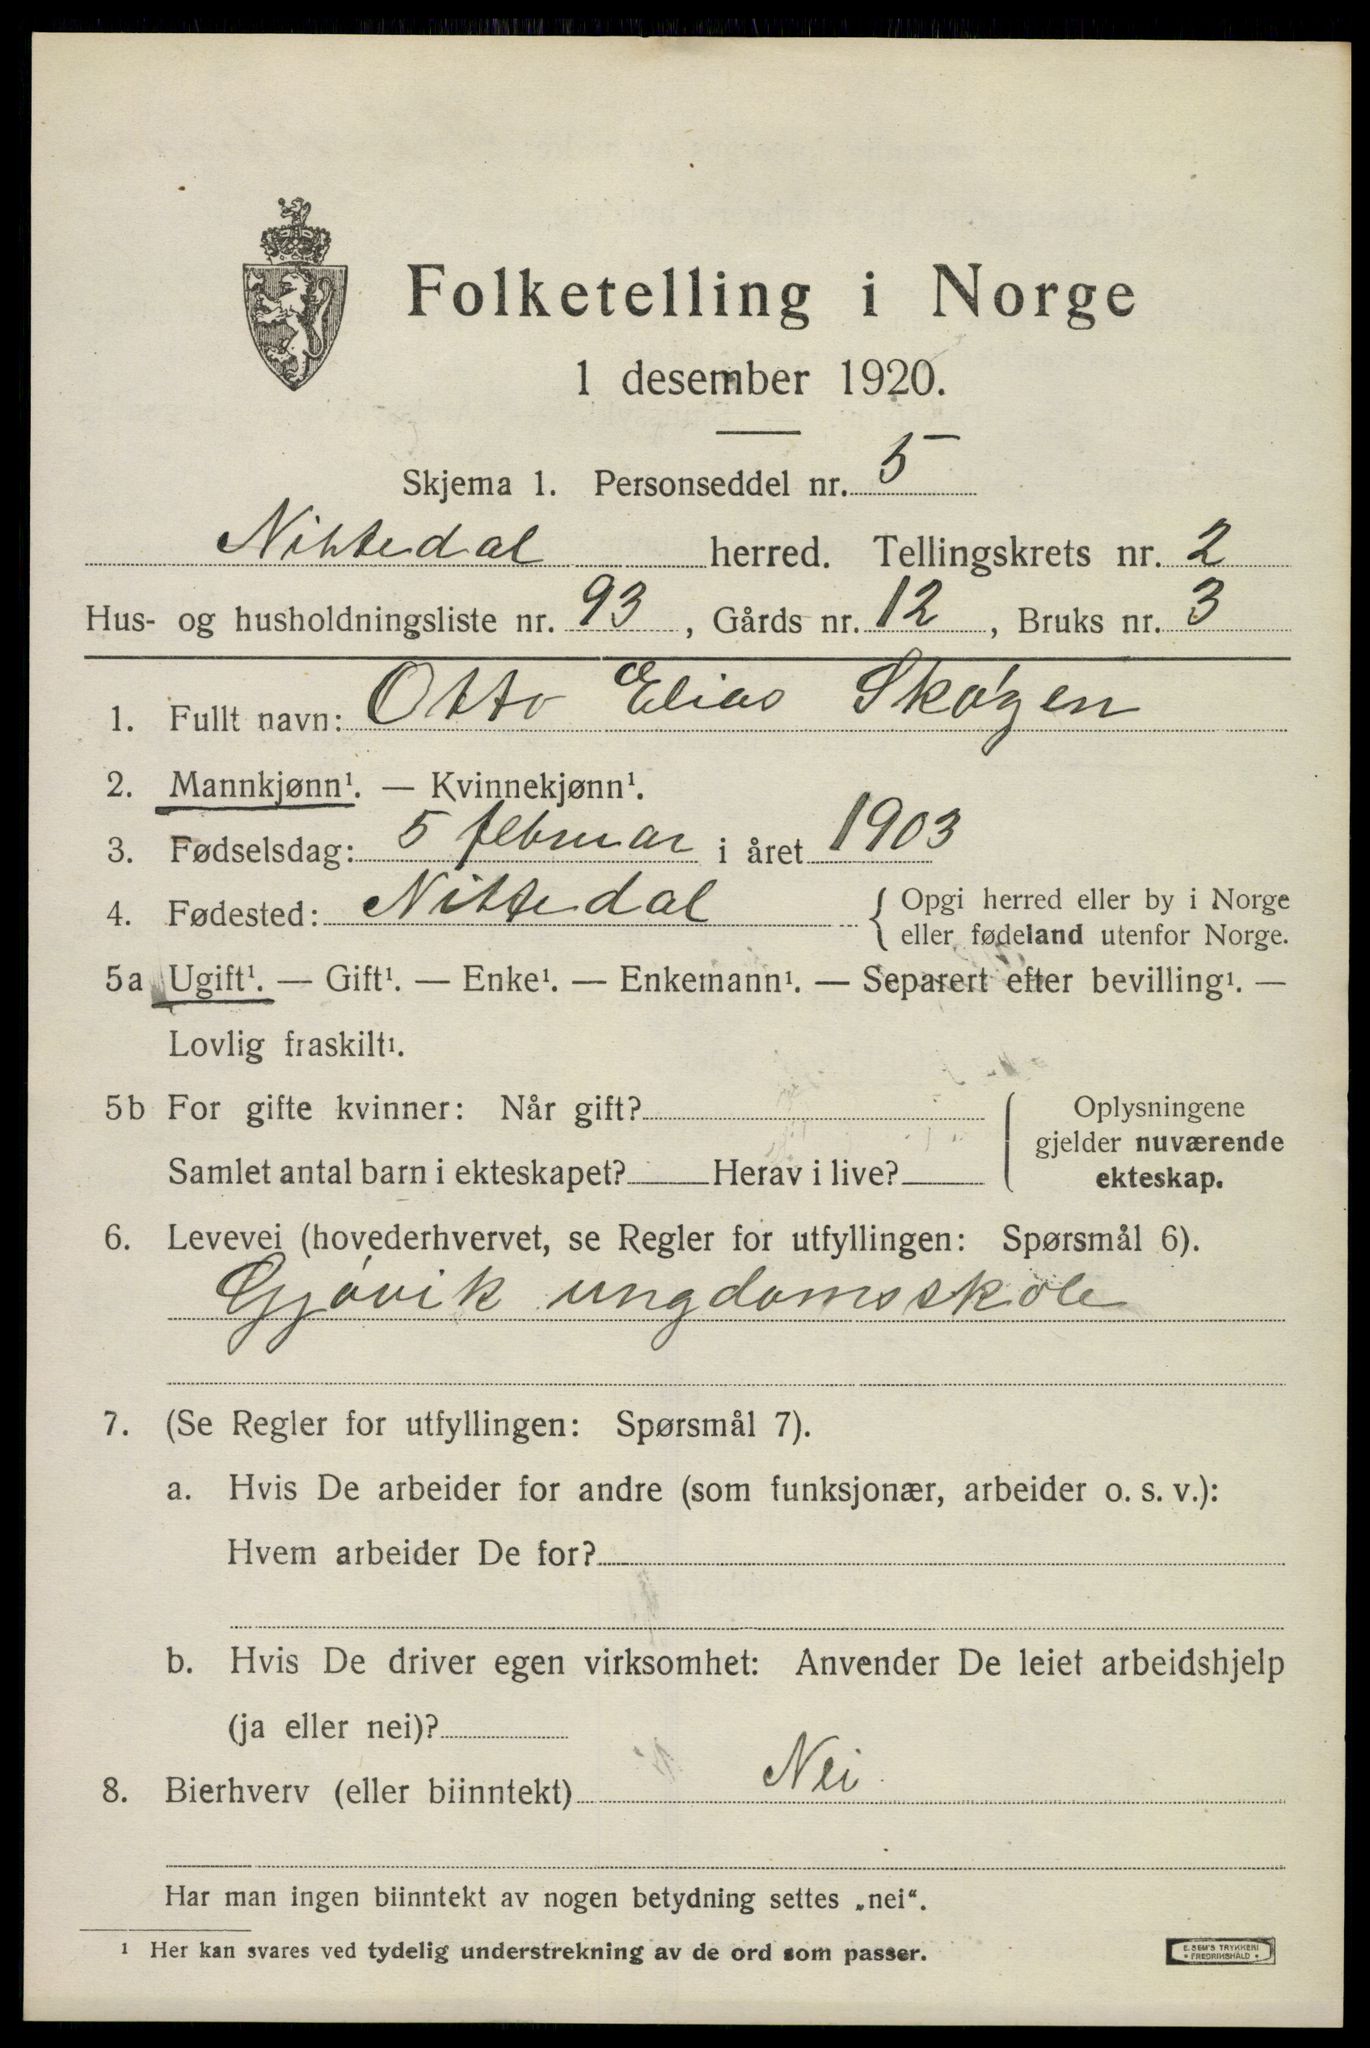 Folketelling i Norge
1 desember 1920.
Skjema 1. Personseddel nr. 5
Nittedal herred. Tellingskrets nr. 2
Hus- og husholdningsliste nr. 93, Gårds nr. 12, Bruks nr. 3
1. Fullt navn: Otto Elias Skøgen
2. Mannkjønn¹. — Kvinnekjønn¹.
3. Fødselsdag: 5 februar i året 1903
4. Fødested: Nittedal { Opgi herred eller by i Norge
eller fødeland utenfor Norge.
5a Ugift¹. — Gift¹. — Enke¹. — Enkemann¹. — Separert efter bevilling¹. —
Lovlig fraskilt¹.
5b For gifte kvinner: Når gift?
Samlet antal barn i ekteskapet? Herav i live?
Oplysningene
gjelder nuværende
ekteskap.
6. Levevei (hovederhvervet, se Regler for utfyllingen: Spørsmål 6).
Gjøvik ungdomsskole
7. (Se Regler for utfyllingen: Spørsmål 7).
a. Hvis De arbeider for andre (som funksjonær, arbeider o. s. v.):
Hvem arbeider De for?
b. Hvis De driver egen virksomhet: Anvender De leiet arbeidshjelp
(ja eller nei)?
8. Bierhverv (eller biinntekt) Nei
Har man ingen biinntekt av nogen betydning settes „nei“.
¹ Her kan svares ved tydelig understrekning av de ord som passer.
E. SEM'S TRYKKERI
• FREDRIKSHALD •